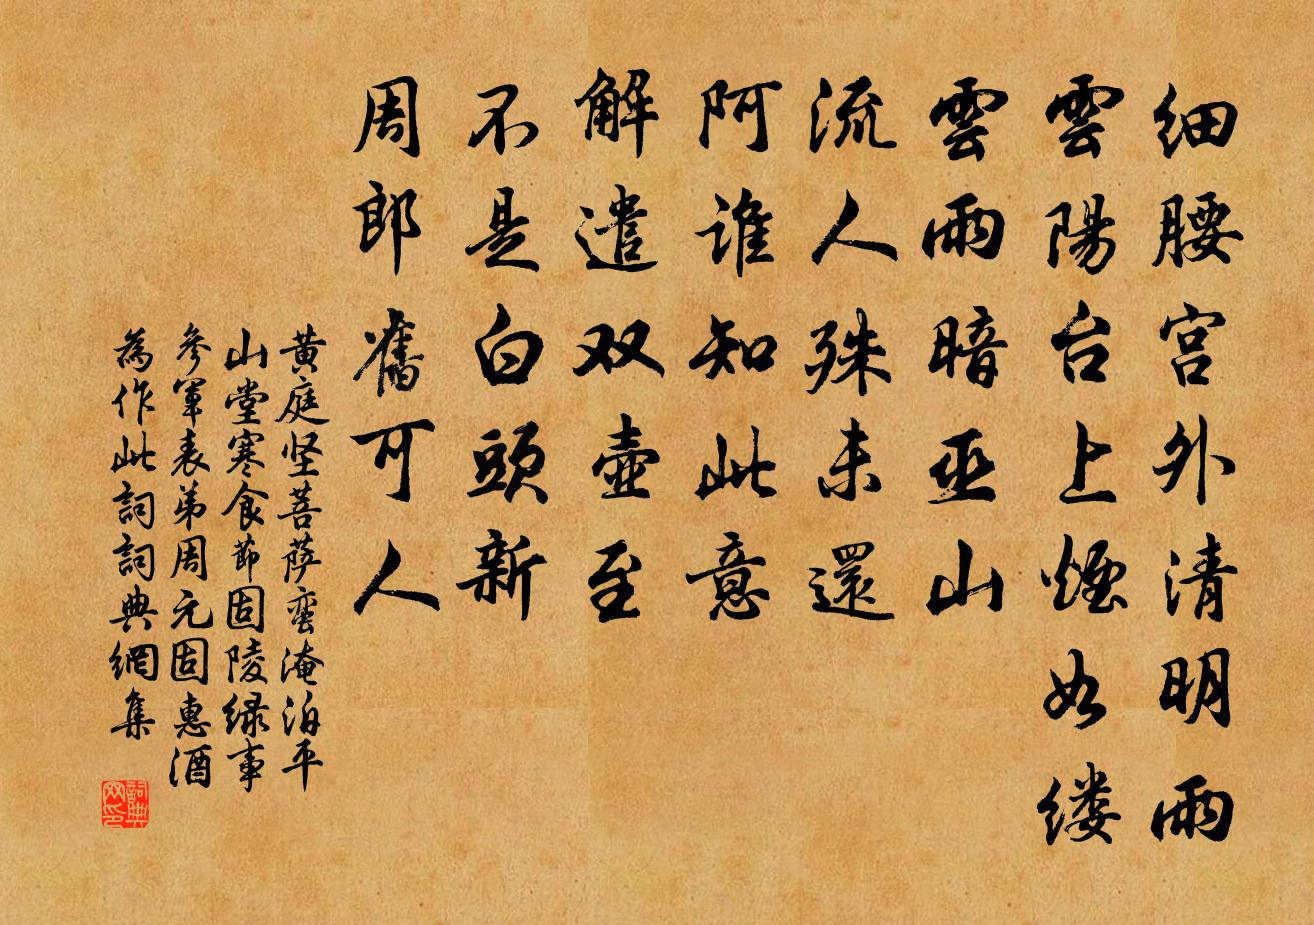 细腰宫外清明雨
雲陽台上煙如缕
雲雨暗巫山
流人殊未還
阿谁知此意
解遣双壶至
不是白頭新
周郎舊可人
黄庭坚菩萨蛮淹泊平
山堂寒食節固陵绿事
參軍表弟周元固惠酒
為作此詞詞典網集
詞典
网印